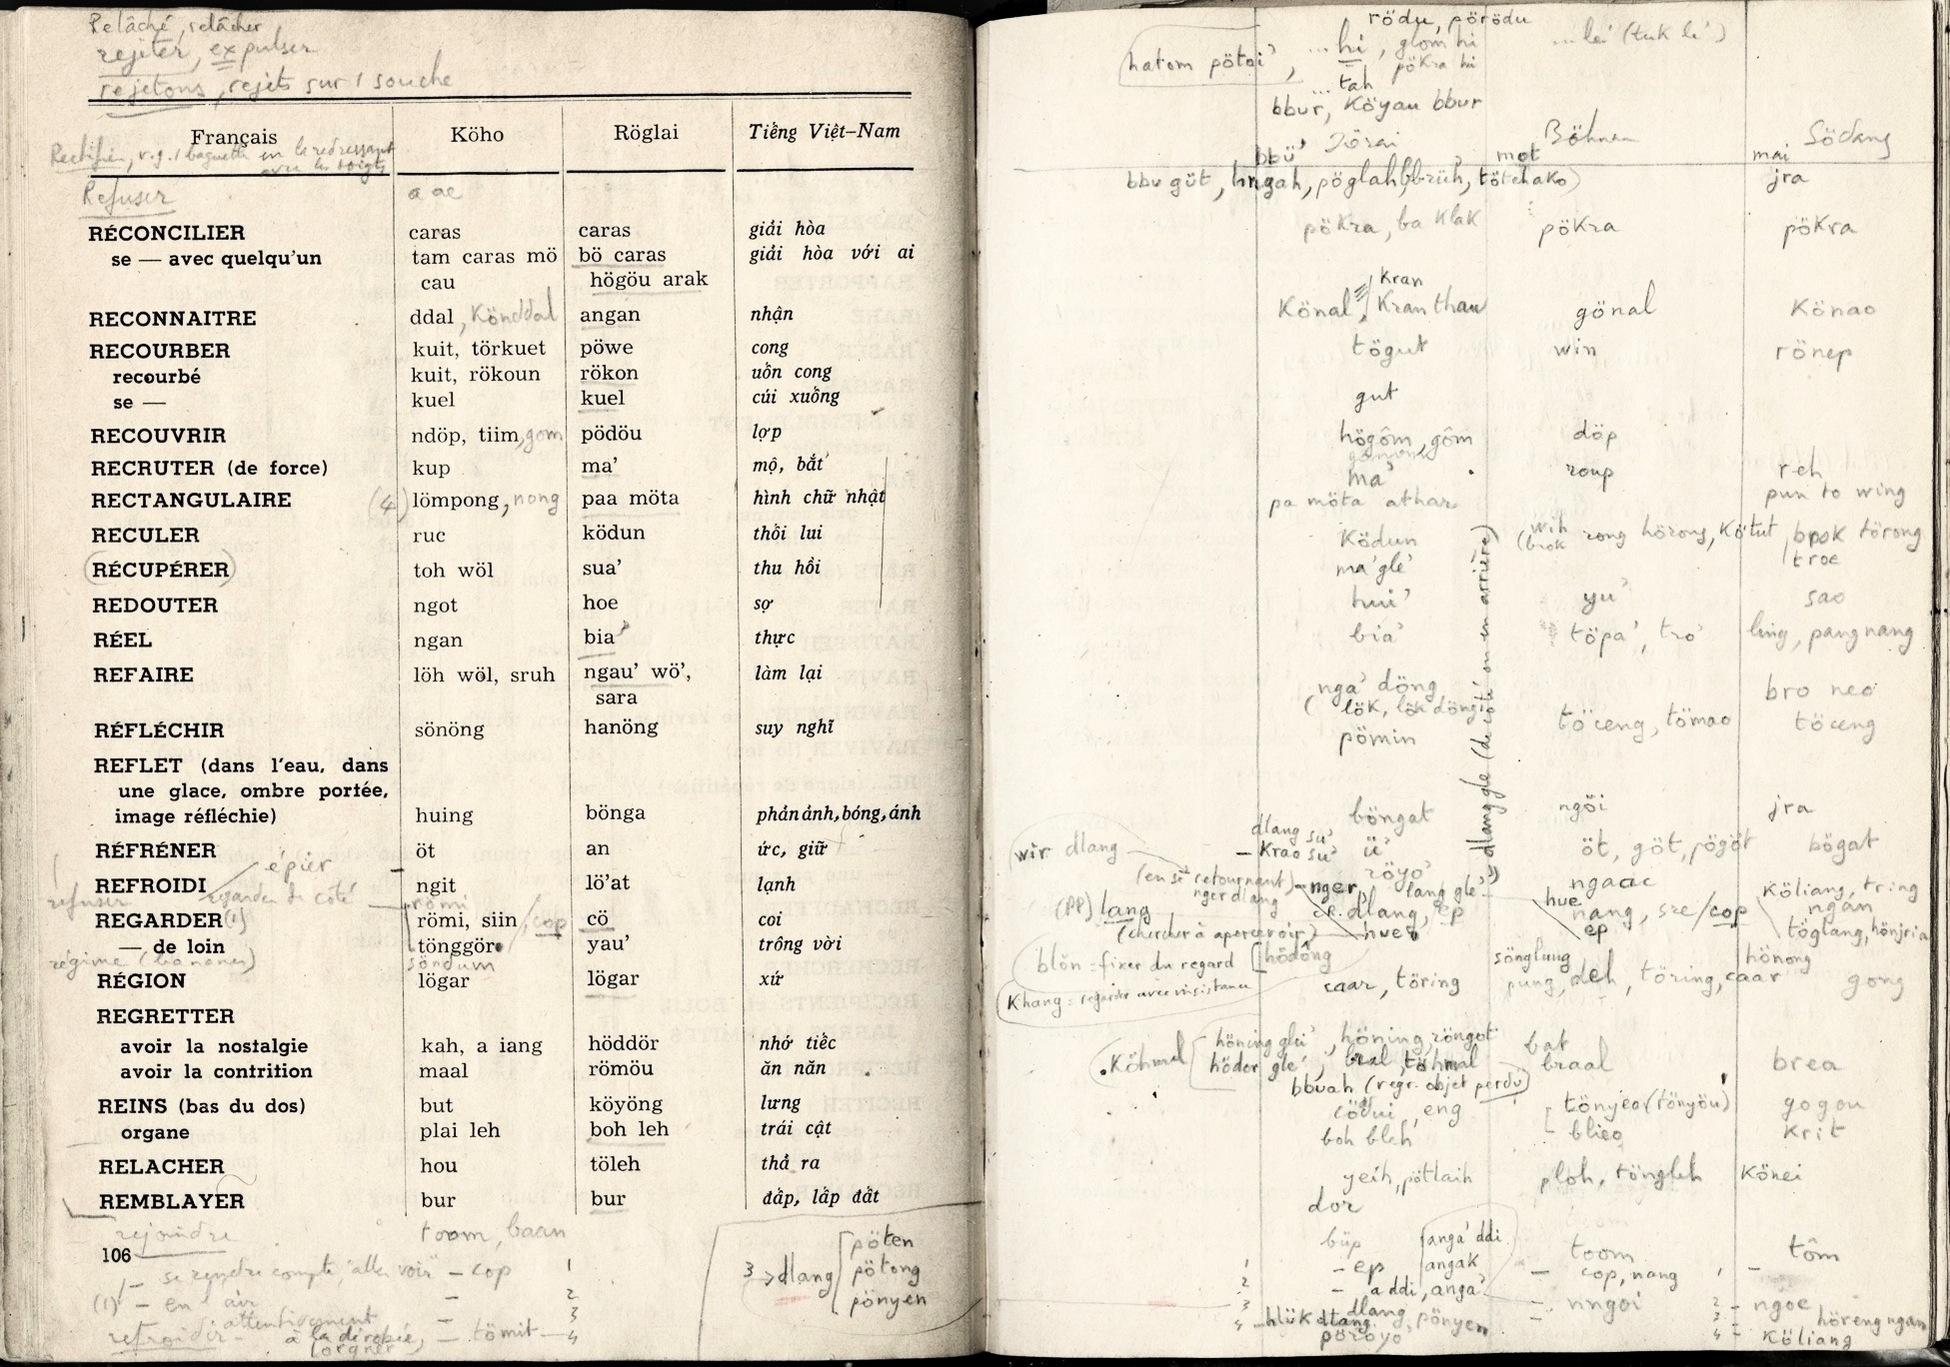 Relâché, relâcher
rejeter, expulser
rejetons, rejets sur 1 souche
Français Köho Röglai Tiếng Việt-Nam
Rectifier, v.g. 1 baguette en la redressant
avec les doigts
Refuser
RÉCONCILIER caras caras giải hòa
se — avec quelqu'un tam caras mö bö caras giải hòa với ai
cau högöu arak
RECONNAITRE ddal, Könddal angan nhận
RECOURBER kuit, törkuet pöwe cong
recourbé kuit, rökoun rökon uốn cong
se — kuel kuel cúi xuống
RECOUVRIR ndöp, tiim, gom pödöu lợp
RECRUTER (de force) kup ma' mộ, bắt
RECTANGULAIRE (4) lömpong, nong paa möta hình chữ nhật
RECULER ruc ködun thối lui
RÉCUPÉRER toh wöl sua' thu hồi
REDOUTER ngot hoe sợ
RÉEL ngan bia' thực
REFAIRE löh wöl, sruh ngau' wö', làm lại
sara
RÉFLÉCHIR sönöng hanöng suy nghĩ
REFLET (dans l'eau, dans
une glace, ombre portée,
image réfléchie) huing bönga phản ảnh, bóng, ánh
RÉFRÉNER öt an ức, giữ
épier
REFROIDI ngit lö'at lạnh
refuser regarder de côté römi
REGARDER (1) römi, siin / cop cö coi
— de loin tönggör yau' trông vời
régime (bananes) söndum
RÉGION lögar lögar xứ
REGRETTER
avoir la nostalgie kah, a iang höddör nhớ tiếc
avoir la contrition maal römöu ăn năn
REINS (bas du dos) but köyöng lưng
organe plai leh boh leh trái cật
RELACHER hou töleh thả ra
REMBLAYER bur bur đắp, lấp đất
rejoindre toom, baan
106
— se rendre compte, "aller voir" — cop 1
(1) — en l'air — 2
attentivement 3
refroidir — à la dérobée, — tömit — 4
lorgner
3 → dlang pöten
pötong
pönyen
rödu, pörödu
hatom pötoi', ... hi, glom hi ... lei (tuk li')
pökra hi
... tah
bbur, Köyau bbur
Jörai Böhnar Södang
bbü' mot mai
bbu güt, hngah, pöglah, bbrüh, tötehako) jra
pökra, ba klak pökra pökra
kran
Könal, Kran thau gönal Könao
tögut win rönep
gut
högôm, gôm döp
ma' roup reh
pa möta athar pun to wing
Ködun (wih brok rong hörong, Kötut brok törong
ma'glê' troe
hui' yu' sao
bia' töpa', tro' ling, pang nang
nga' döng bro neo
( lök, lök döngi
pömin töceng, tömao töceng
dlang gle (de côté ou en arrière)
böngat ngöi jra
dlang su'
wir dlang — Krao su' ü' öt, göt, pögöt bögat
röyo'
(en se retournant) nger, lang gle' ngaac Köliang, tring
nger dlang
(PP) lang cp. dlang, ep hue nang, sre / cop ngan
(chercher à apercevoir) hueq ep töglang, hönjria
blŏn = fixer du regard hödöng sönglung hönong
Khang = regarder avec insistance caar, töring pung, deh, töring, caar gong
höning glei', höning, röngot bat
Köhmal höder glé', bral, töhmal braal brea
bbuah (regr. objet perdu)
ködui', eng tönyeo (tönyöu) gogou
boh bleh blieo krit
yeih, pötlaih ploh, töngleh Könei
dor
büp anga' ddi toom tôm
1 — ep angak — cop, nang 1 —
2 — a ddi, anga' — nngoi 2 — ngoe
3 dlang 3 höreng ngan
4 — hlük dlang, pönyen 4 — Köliang
pöröyo'